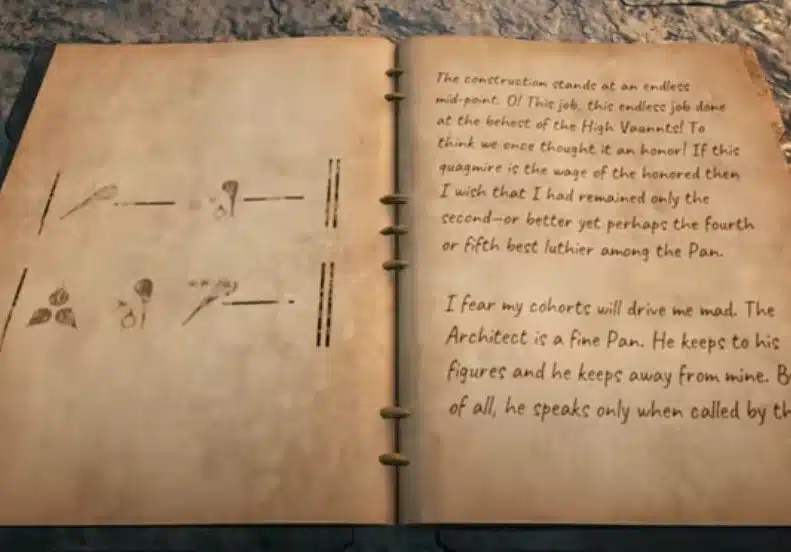 The construction stands at an endless
mid-point. O! This job, this endless job done
at the behest of the High Vaunnts! To
think we once thought it an honor! If this
quagmire is the wage of the honored then
I wish that I had remained only the
second—or better yet perhaps the fourth
or fifth best luthier among the Pan.
I fear my cohorts will drive me mad. The
Architect is a fine Pan. He keeps to his
figures and he keeps away from mine.
of all, he speaks only when called by